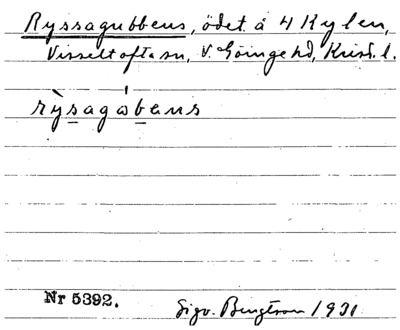 Ryssagubbens, ödet. å 4 Kylen,
Visseltofta sn, V. Göinge hd, Krist. l.
rỳsagábens
Nr 5392.
Sigv. Bengtson 1931